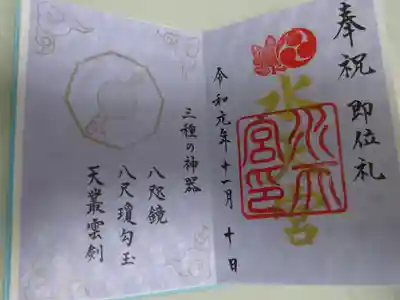 奉祝 即位礼
水天宮
水天
宮印
令和元年 十一月 十日
三種の神器
八咫鏡
八尺瓊勾玉
天叢雲剣